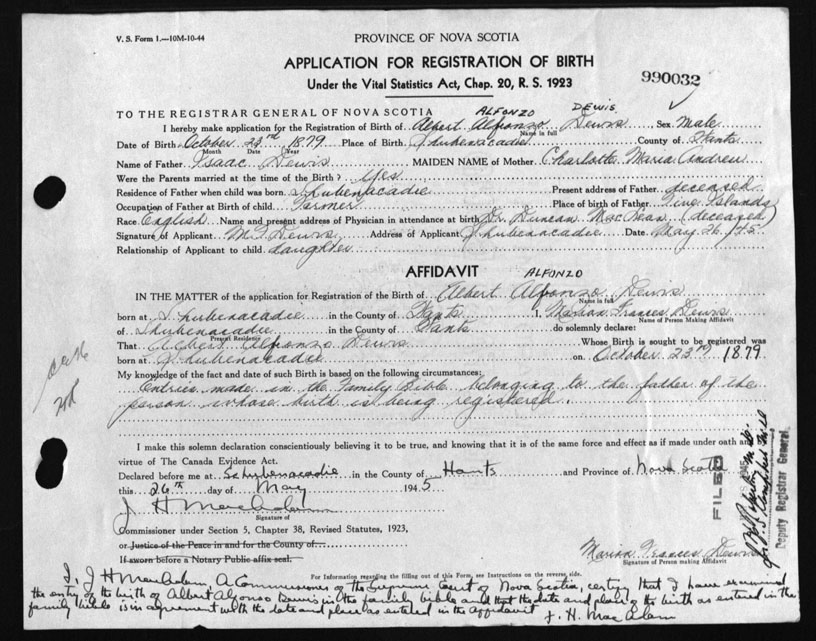 V. S. Form 1.—10M-10-44
PROVINCE OF NOVA SCOTIA
APPLICATION FOR REGISTRATION OF BIRTH
Under the Vital Statistics Act, Chap. 20, R. S. 1923
990032
TO THE REGISTRAR GENERAL OF NOVA SCOTIA
ALFONZO DEWIS
I hereby make application for the Registration of Birth of Albert Alfonzo Dewis Sex Male
Name in full
Date of Birth October 23rd 1879 Place of Birth Shubenacadie County of Hants
Month Date Year
Name of Father Isaac Dewis MAIDEN NAME of Mother Charlotte Maria Andrew
Were the Parents married at the time of the Birth? Yes
Residence of Father when child was born Shubenacadie Present address of Father deceased
Occupation of Father at Birth of child Farmer Place of birth of Father Five Islands
Race English Name and present address of Physician in attendance at birth Dr. Duncan (deceased)
Signature of Applicant M. F. Dewis Address of Applicant Shubenacadie Date May 26/45
Relationship of Applicant to child daughter
AFFIDAVIT
ALFONZO
IN THE MATTER of the application for Registration of the Birth of Albert Alfonzo Dewis
Name in full
born at Shubenacadie in the County of Hants I, Marion Frances Dewis
Name of Person Making Affidavit
of Shubenacadie in the County of Hants do solemnly declare:
Present Residence
That Albert Alfonzo Dewis Whose Birth is sought to be registered was
born at Shubenacadie on October 23rd 1879
My knowledge of the fact and date of such Birth is based on the following circumstances:
Entries made in the Family Bible belonging to the father of the
person whose birth is being registered.
I make this solemn declaration conscientiously believing it to be true, and knowing that it is of the same force and effect as if made under oath and
virtue of The Canada Evidence Act.
Declared before me at Schubenacadie in the County of Hants and Province of Nova Scotia
this 26th day of May 1945
J H MacAdam
Signature of
Commissioner under Section 5, Chapter 38, Revised Statutes, 1923,
or Justice of the Peace in and for the County of
If sworn before a Notary Public affix seal.
Marion Frances Dewis
Signature of Person Making Affidavit
FILED
Deputy Registrar General
For Information regarding the filling out of this Form, see Instructions on the reverse side.
I, J H MacAdam, A Commissioner of the Supreme Court of Nova Scotia, certify that I have examined
the entry of the birth of Albert Alfonso Dewis in the family bible and that the date and place of the birth as entered in the
family bible is in agreement with the date and place as entered in the affidavit J. H. MacAdam